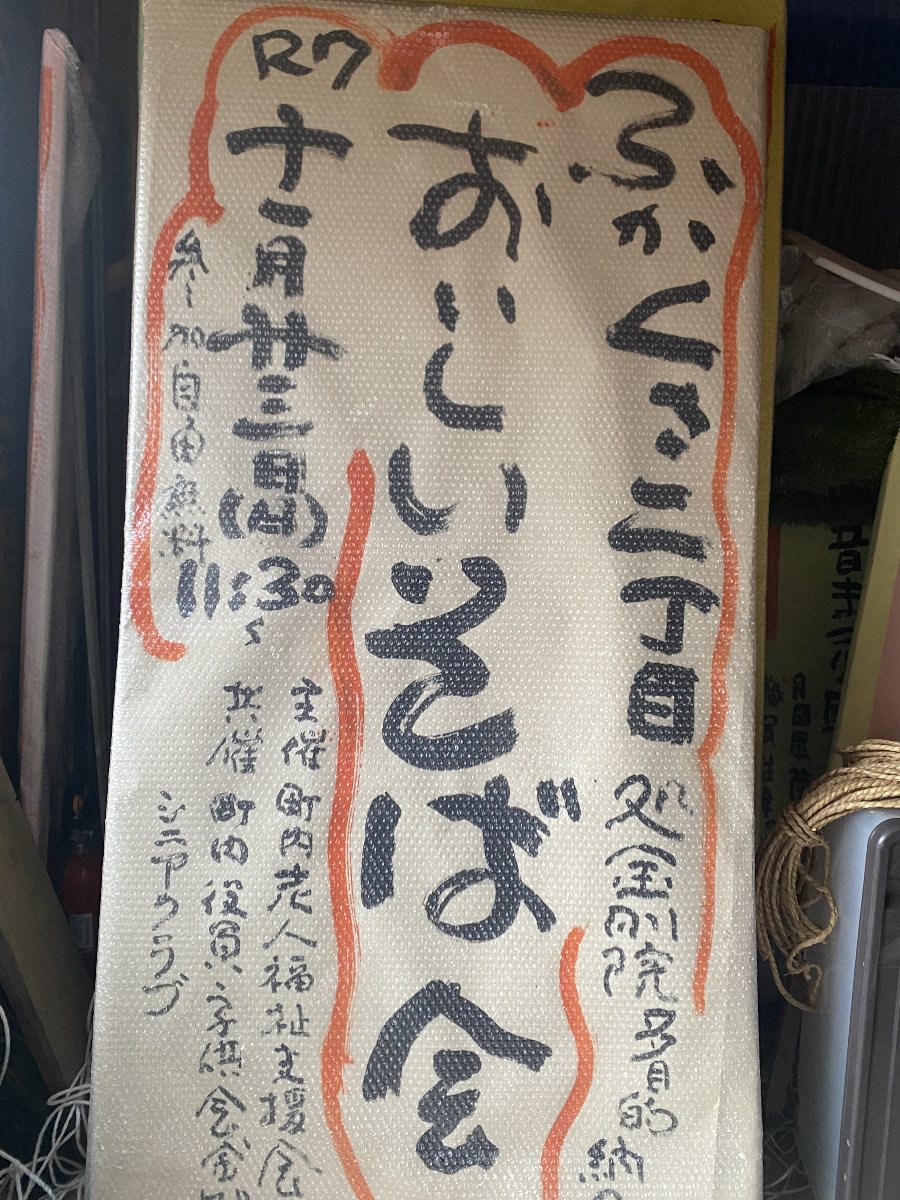 ふかくさ二丁目
処 金剛院 多目的
おいしいそば会
R7
十一月廿三日(日)
11:30〜
参加自由無料
主催 町内老人福祉支援会
共催 町内役員 子供会
シニアクラブ